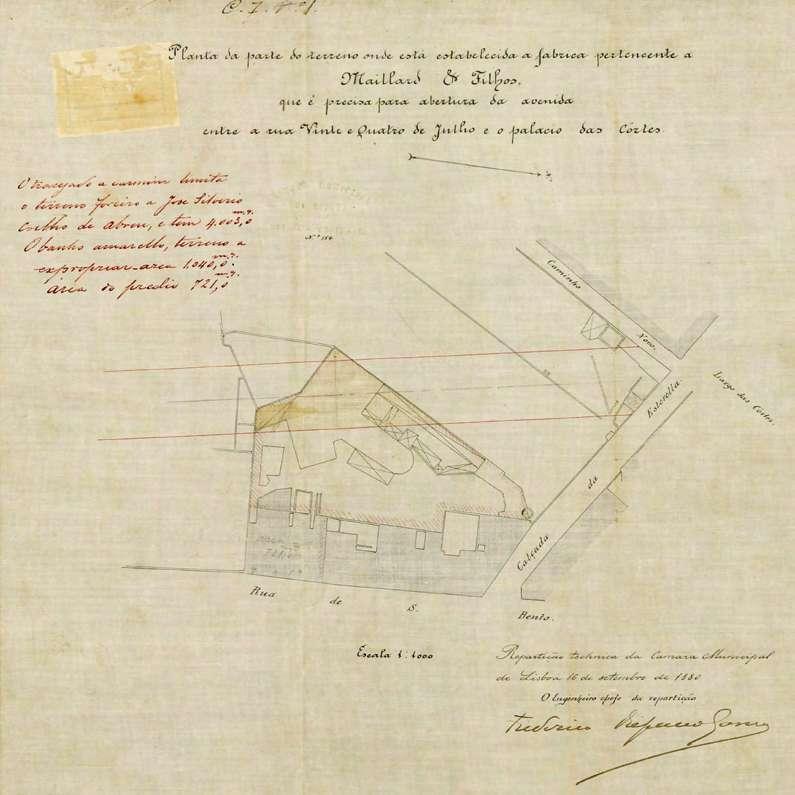 C. 7. Nº 1.
Planta da parte do terreno onde está estabelecida a fabrica pertencente a
Maillard & Filhos,
que é precisa para abertura da avenida
entre a rua Vinte e Quatro de Julho e o palacio das Côrtes.
O tracejado a carmim limita
o terreno foreiro a Jose Silverio
Coelho de Abreu, e tem 4.003,0 m.q.
O banho amarello, terreno a
expropriar_area 1.040,0 m.q.
área do predio 721,0 m.q.
Caminho Novo.
Largo das Cortes.
Calçada da Estrella.
Rua de S. Bento.
Escala 1:1000
Repartição technica da Camara Municipal
de Lisboa 16 de setembro de 1880
O Engenheiro chefe da repartição
Frederico Ressano Garcia